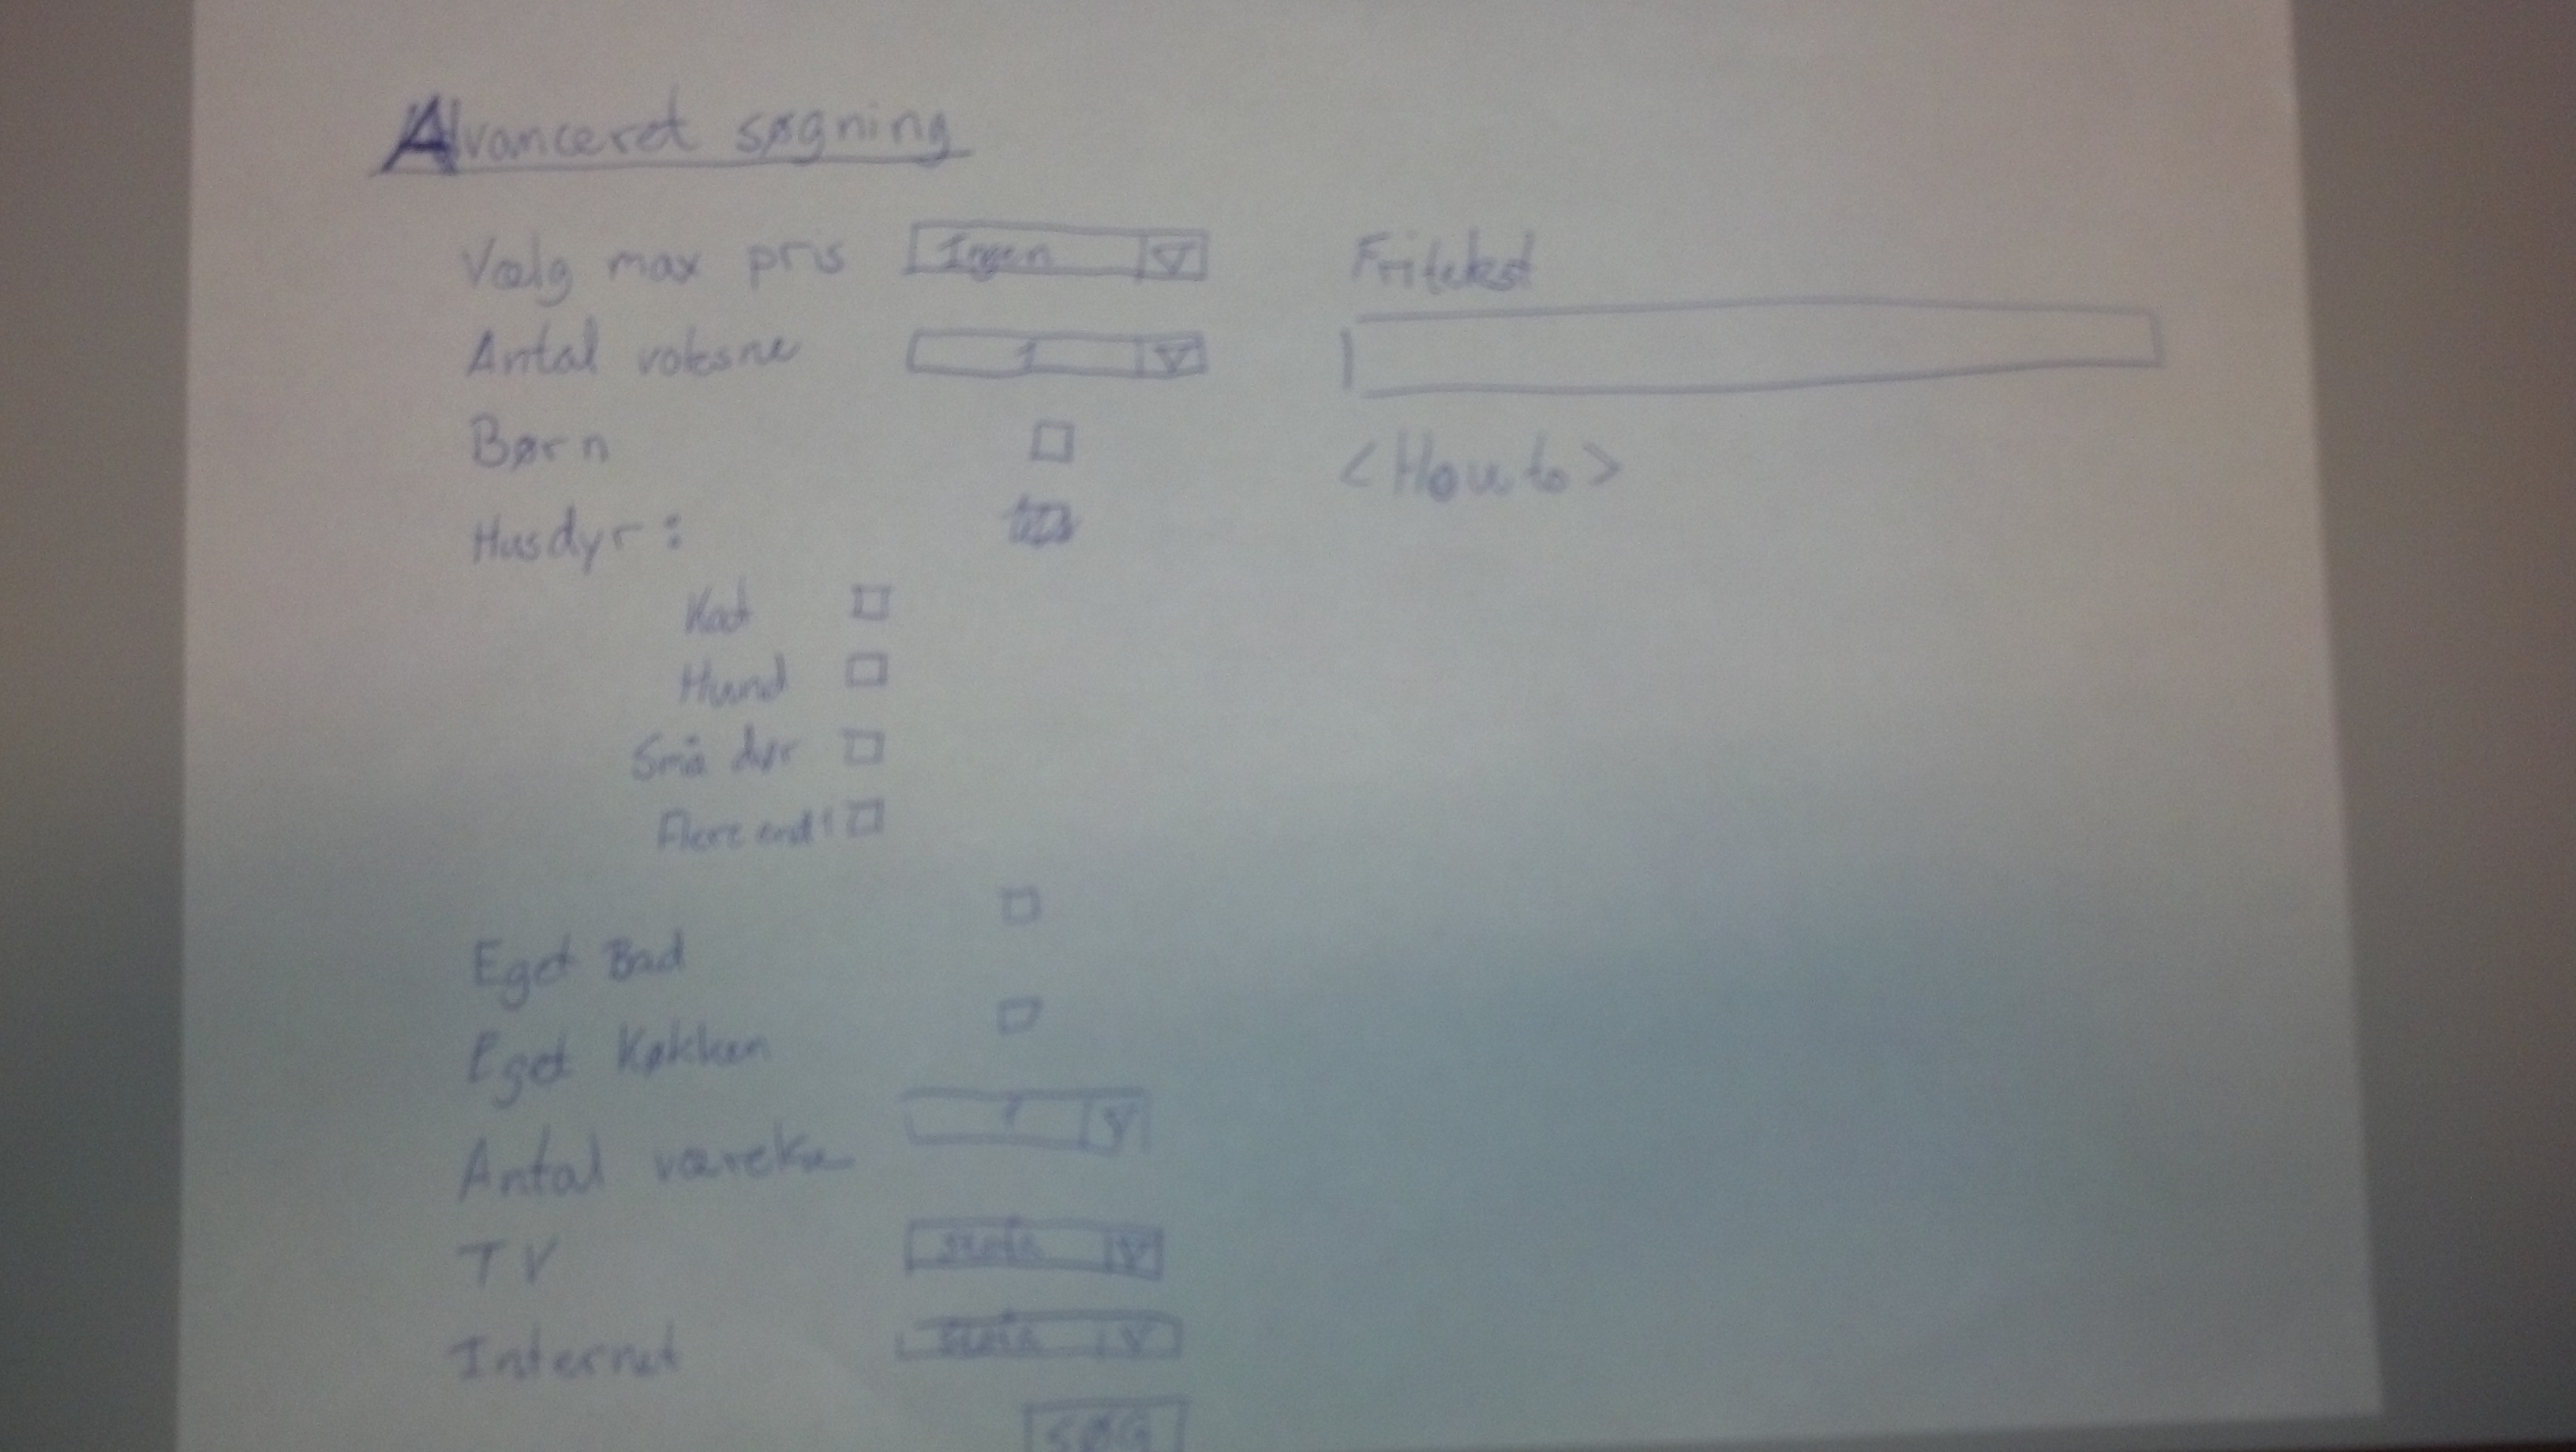 Avanceret søgning
Vælg max pris Ingen
Antal voksne 1
Børn
Husdyr :
Kat
Hund
Små dyr
Flere end 1
Eget Bad
Eget Køkken
Antal værelse 1
TV
Internet
SØG
Fritekst
<How to>